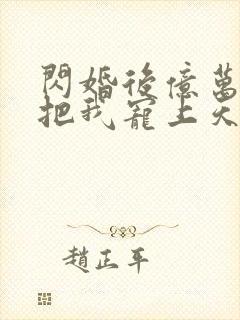 閃婚後億萬
把我寵上天
趙正平